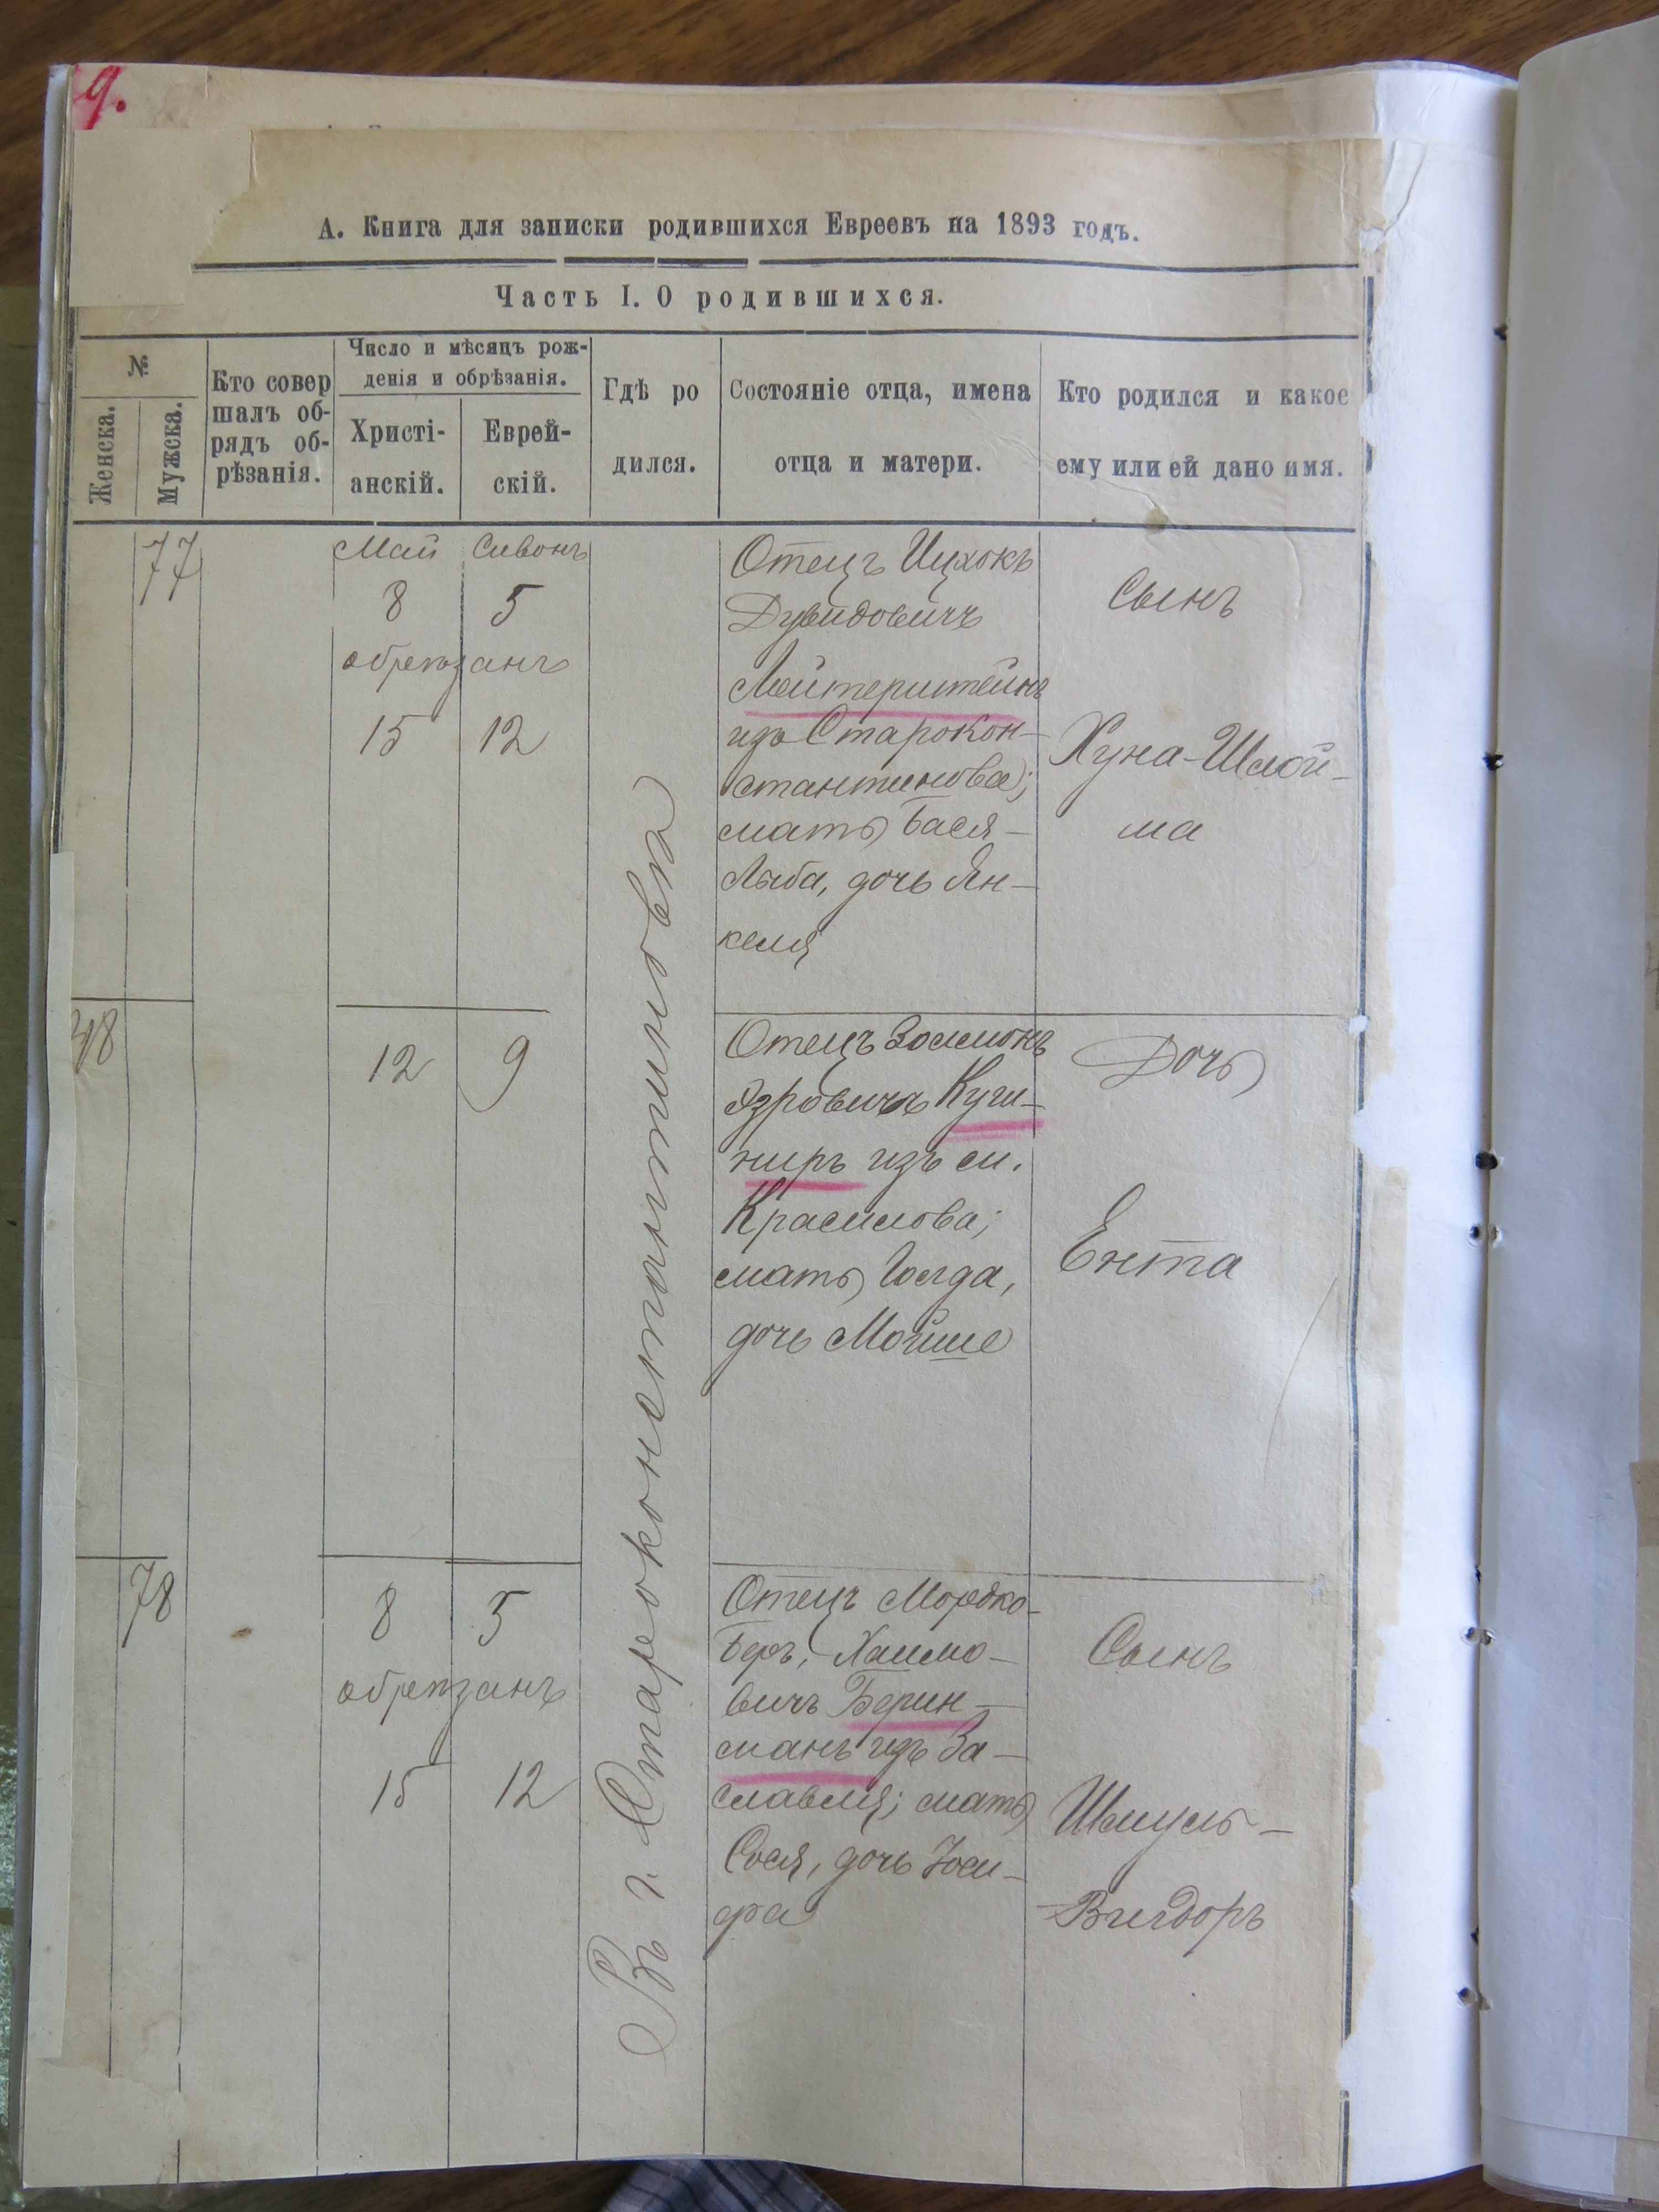 9.
А. Книга для записки родившихся Евреевъ на 1893 годъ.
Часть I. О родившихся.
№
Женска.
Мужска.
Кто совер
шалъ об-
рядъ об-
рѣзанія.
Число и мѣсяцъ рож-
денія и обрѣзанія.
Христі-
анскій.
Еврей-
скій.
Гдѣ ро
дился.
Состояніе отца, имена
отца и матери.
Кто родился и какое
ему или ей дано имя.
77
Май Сивонъ
8 5
обрѣзанъ
15 12
Въ г. Староконстантиновѣ
Отецъ Ицхокъ
Дувидовичъ
Лейтерштейнъ
изъ Старокон-
стантинова;
мать Бася-
Лыба, дочь Ян-
келя
Сынъ
Хуна-Шлой-
ма
48
12 9
Отецъ Золмонъ
Азровичъ Куш-
ниръ изъ м.
Красилова;
мать Голда,
дочь Мойше
Дочь
Ента
78
8 5
обрѣзанъ
15 12
Отецъ Мордко-
Беръ, Хаимо-
вичъ Берин-
манъ изъ За-
славля; мать
Сося, дочь Іоси-
фа
Сынъ
Шмуль-
Вигдоръ